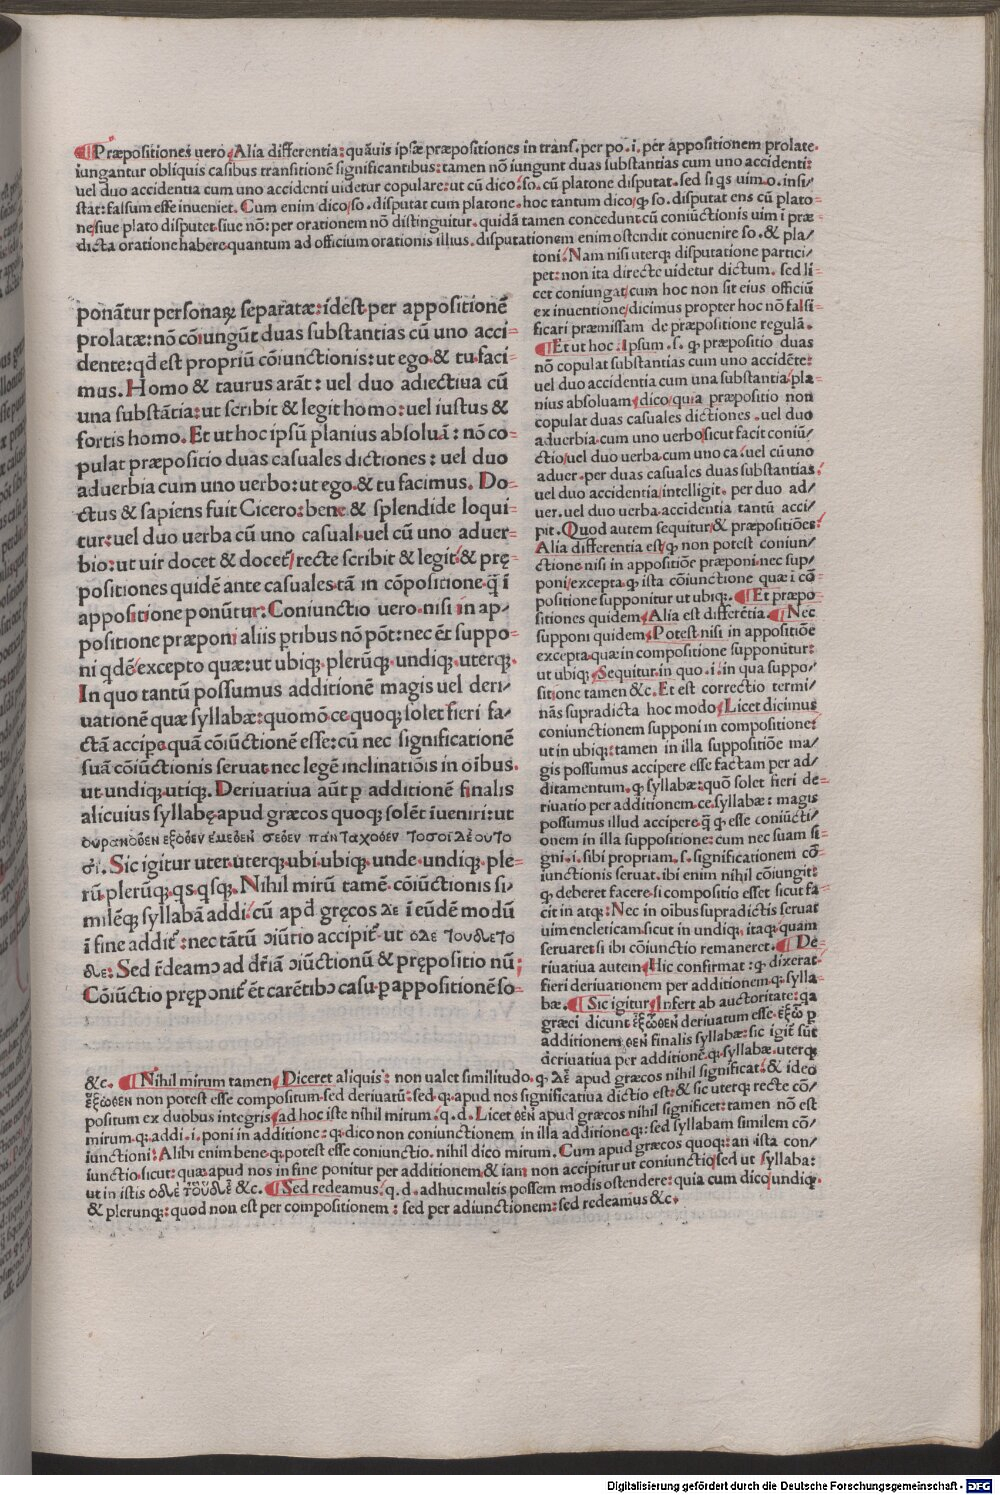 ¶Præpositiones uero. Alia differentia: quãuis ipsæ præpositiones in trans. per po. i. per appositionem prolate.
iungantur obliquis casibus transitionẽ significantibus: tamen nõ iungunt duas substantias cum uno accidenti:
uel duo accidentia cum uno accidenti uidetur copulare: ut cũ dico: so. cũ platone disputat. sed si qs uim. o. insi/
stat: falsum esse inueniet. Cum enim dico/ so. disputat cum platone. hoc tantum dico/ ꝙ so. disputat ens cũ plato-
ne/ siue plato disputet: siue nõ: per orationem nõ distinguitur. quidã tamen concedunt cũ coniũctionis uim ĩ præ-
dicta oratione habere quantum ad officium orationis illius. disputationem enim ostendit conuenire so. & pla/
ponãtur personaꝝ separatæ: idest per appositionẽ
prolatæ: nõ cõiungũt duas substantias cũ uno acci-
dente: qđ est propriũ cõiunctionis: ut ego & tu faci-
mus. Homo & taurus arãt: uel duo adiectiua cũ
una substãtia: ut scribit & legit homo: uel iustus &
fortis homo. Et ut hoc ipsũ planius absoluã: nõ co-
pulat præpositio duas casuales dictiones: uel duo
aduerbia cum uno uerbo: ut ego & tu facimus. Do-
ctus & sapiens fuit Cicero: bene & splendide loqui-
tur: uel duo uerba cũ uno casuali uel cũ uno aduer-
bio: ut uir docet & docet/ recte scribit & legit: & prę
positiones quidẽ ante casuales tã in cõpositione q̃ ĩ
appositione ponũtur: Coniunctio uero nisi in ap/
positione præponi aliis ptibus nõ põt: nec ẽt suppo-
ni qdẽ/ excepto quæ: ut ubiqꝫ plerũqꝫ undiqꝫ uterqꝫ.
In quo tantũ possumus additionẽ magis uel deri/
uationẽ quæ syllabæ: quomõ ce quoqꝫ solet fieri fa/
ctã accipe quã cõiũctionẽ esse: cũ nec significationẽ
suã cõiũctionis seruat nec legẽ inclinatiõis in oibus.
ut undiqꝫ utiqꝫ. Deriuatiua aũt p additionẽ finalis
alicuius syllabę apud græcos quoqꝫ solẽt ĩueniri: ut
ουρανοθεν εξοθεν εμεθεν σεθεν πανταχοθεν τοσοιδεουτο
σι. Sic igitur uter uterqꝫ ubi ubiqꝫ unde undiqꝫ ple-
rũ plerũqꝫ qs qsqꝫ. Nihil mirũ tamẽ cõiũctionis si/
milẽqꝫ syllabã addi: cũ apđ gręcos δε ĩ eũdẽ modũ
ĩ fine addit: nec tãtũ ↄiũtio accipit ut οδε τουδε το
δε: Sed rẽdeamꝰ ad dr̃iã ↄiũctionũ & prępositio nũ;
Cõiũctio pręponit ẽt carẽtibꝰ casu p appositionẽ so-
toni. Nam nisi uterqꝫ disputatione partici/
pet: non ita directe uidetur dictum. sed li-
cet coniungat/ cum hoc non sit eius officiũ
ex inuentione/ dicimus propter hoc nõ falsi-
ficari præmissam de præpositione regulã.
¶Et ut hoc. Ipsum. s. ꝙ præpositio duas
nõ copulat substantias cum uno accidẽte:
uel duo accidentia cum una substantia/ pla-
nius absoluam/ dico/ quia præpositio non
copulat duas casuales dictiones. uel duo
aduerbia cum uno uerbo/ sicut facit coniũ/
ctio/ uel duo uerba cum uno ca. uel cũ uno
aduer. per duas casuales duas substantias:
uel duo accidentia/ intelligit. per duo ad/
uer. uel duo uerba accidentia tantũ acci/
pit. Quod autem sequitur/ & præpositiões:
Alia differentia est/ ꝙ non potest coniun/
ctione nisi in appositiõe præponi nec sup/
poni/ excepta ꝙ ista cõiunctione quæ ĩ cõ-
positione supponitur ut ubiqꝫ. ¶Et præpo
sitiones quidem/ Alia est differẽtia. ¶Nec
supponi quidem/ Potest nisi in appositiõe
excepta quæ in compositione supponũtur:
ut ubiqꝫ. Sequitur in quo. i. in qua suppo/
sitione tamen &c. Et est correctio termi/
nãs supradicta hoc modo/ Licet dicimus
coniunctionem supponi in compositione:
ut in ubiqꝫ: tamen in illa suppositiõe ma/
gis possumus accipere esse factam per ad/
ditamentum. ꝙ syllabæ: quõ solet fieri de-
riuatio per additionem. ce. syllabæ: magis
possumus illud accipere q̃ ꝙ esse coniũcti/
onem in illa suppositione: cum nec suam si-
gni. i. sibi propriam. s. significationem cõ-
iunctionis seruat. ibi enim nihil cõiungit:
ꝙ deberet facere si compositio esset sicut fa-
cit in atqꝫ: Nec in oibus supradictis seruat
uim encleticam. sicut in undiqꝫ itaqꝫ quam
seruaret si ibi cõiunctio remaneret. ¶De-
riuatiua autem/ Hic confirmat: ꝙ dixerat
fieri deriuationem per additionem ꝙ sylla-
bæ. ¶Sic igitur/ Infert ab auctoritate: qa
græci dicunt ἔξωθεν deriuatum esse ἔξω p
additionem θεν finalis syllabæ: sic igit sũt
deriuatiua per additionẽ qꝫ syllabæ. uterqꝫ
&c. ¶Nihil mirum tamen/ Diceret aliquis: non ualet similitudo. ꝙ δε apud græcos nihil significat: & ideo
ἔξωθεν non potest esse compositum sed deriuatũ: sed qꝫ apud nos significatiua dictio est: & sic uterqꝫ recte cõ/
positum ex duobus integris/ ad hoc iste nihil mirum. q. d. Licet θεν apud græcos nihil significet: tamen nõ est
mirum. qꝫ addi. i. poni in additione: ꝙ dico non coniunctionem in illa additione qꝫ: sed syllabam similem cõ/
iunctioni: Alibi enim bene qꝫ potest esse coniunctio. nihil dico mirum. Cum apud græcos quoqꝫ: an ista con/
iunctio sicut: quæ apud nos in fine ponitur per additionem & iam non accipitur ut coniunctio/ sed ut syllaba:
ut in istis οδε τούδε &c. ¶Sed redeamus/ q. d. adhuc multis possem modis ostendere: quia cum dico/ undiqꝫ.
& plerunqꝫ: quod non est per compositionem: sed per adiunctionem: sed redeamus &c.
Digitalisierung gefördert durch die Deutsche Forschungsgemeinschaft - DFG